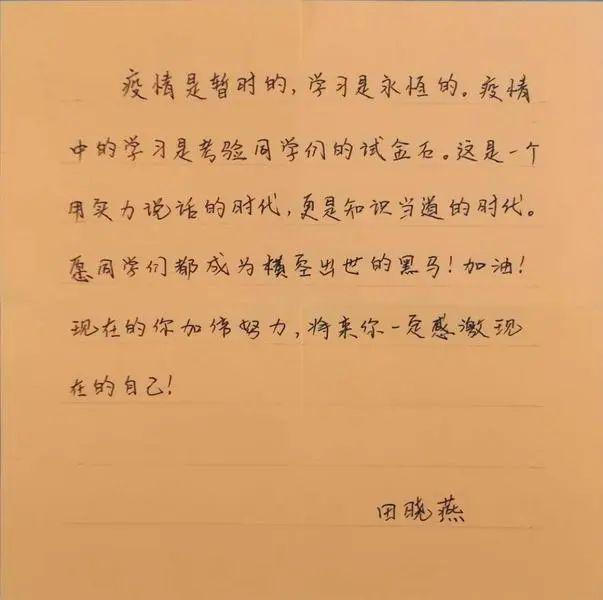 疫情是暂时的，学习是永恒的。疫情
中的学习是考验同学们的试金石。这是一个
用实力说话的时代，更是知识当道的时代。
愿同学们都成为横空出世的黑马！加油！
现在的你加倍努力，将来你一定感激现
在的自己！
田晓燕